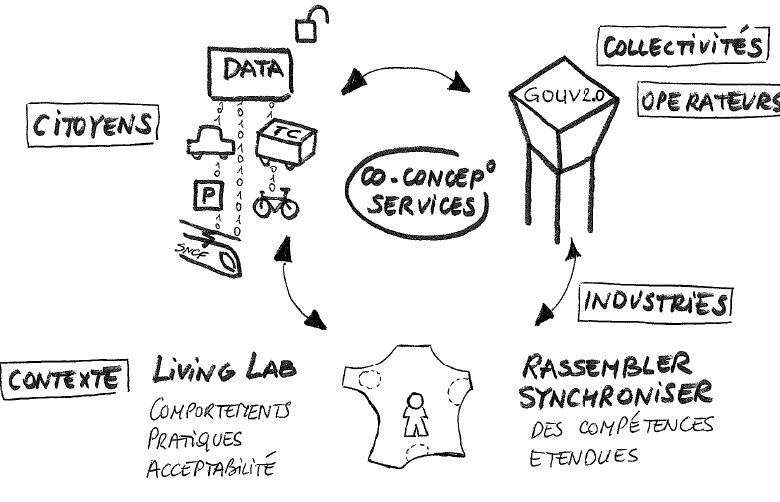 DATA
COLLECTIVITÉS
GOUV2.0
OPERATEURS
CITOYENS
TC
CO-CONCEP°
SERVICES
P
SNCF
INDUSTRIES
CONTEXTE
LIVING LAB
COMPORTEMENTS
PRATIQUES
ACCEPTABILITÉ
RASSEMBLER
SYNCHRONISER
DES COMPÉTENCES
ETENDUES